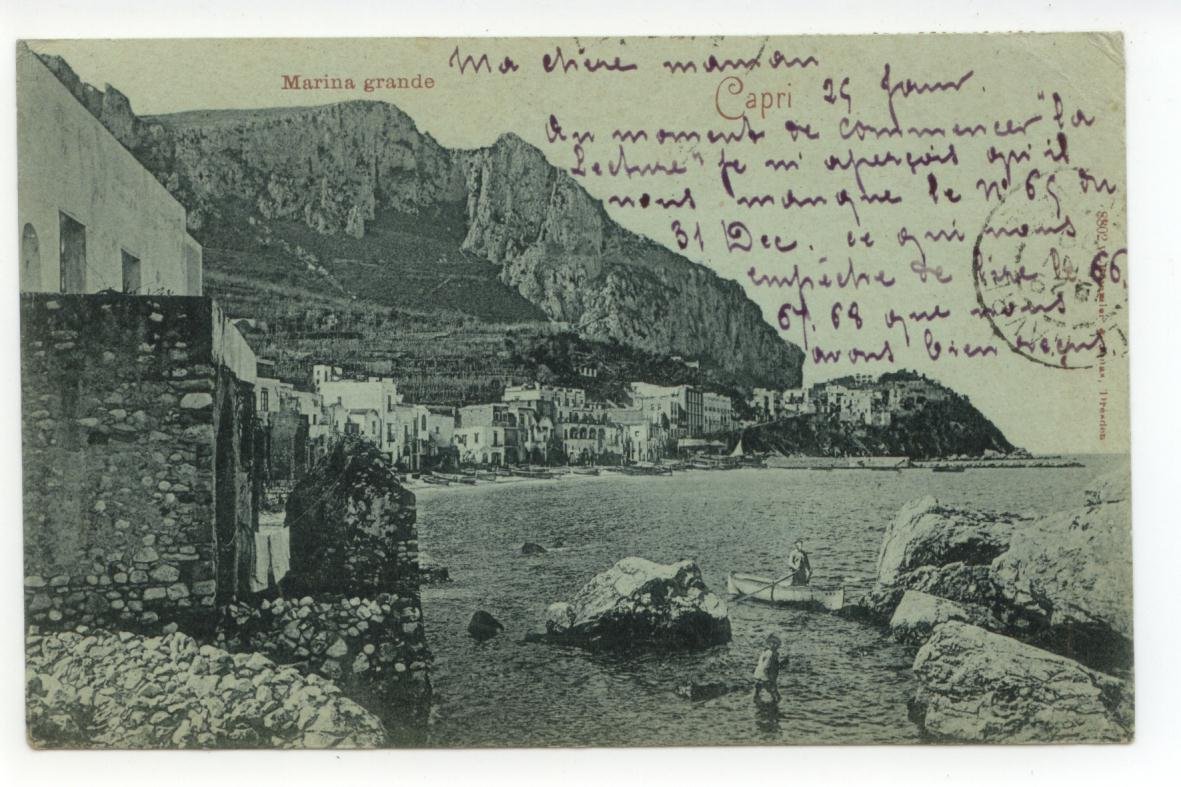 Marina grande
Ma chère maman
Capri 25 Janv.
Au moment de commencer "la
Lecture" je m'aperçois qu'il
nous manque le N° 65 du
31 Dec. ce qui nous
empêche de lire le 66.
67. 68 que nous
avons bien reçus.
8802 Dresden